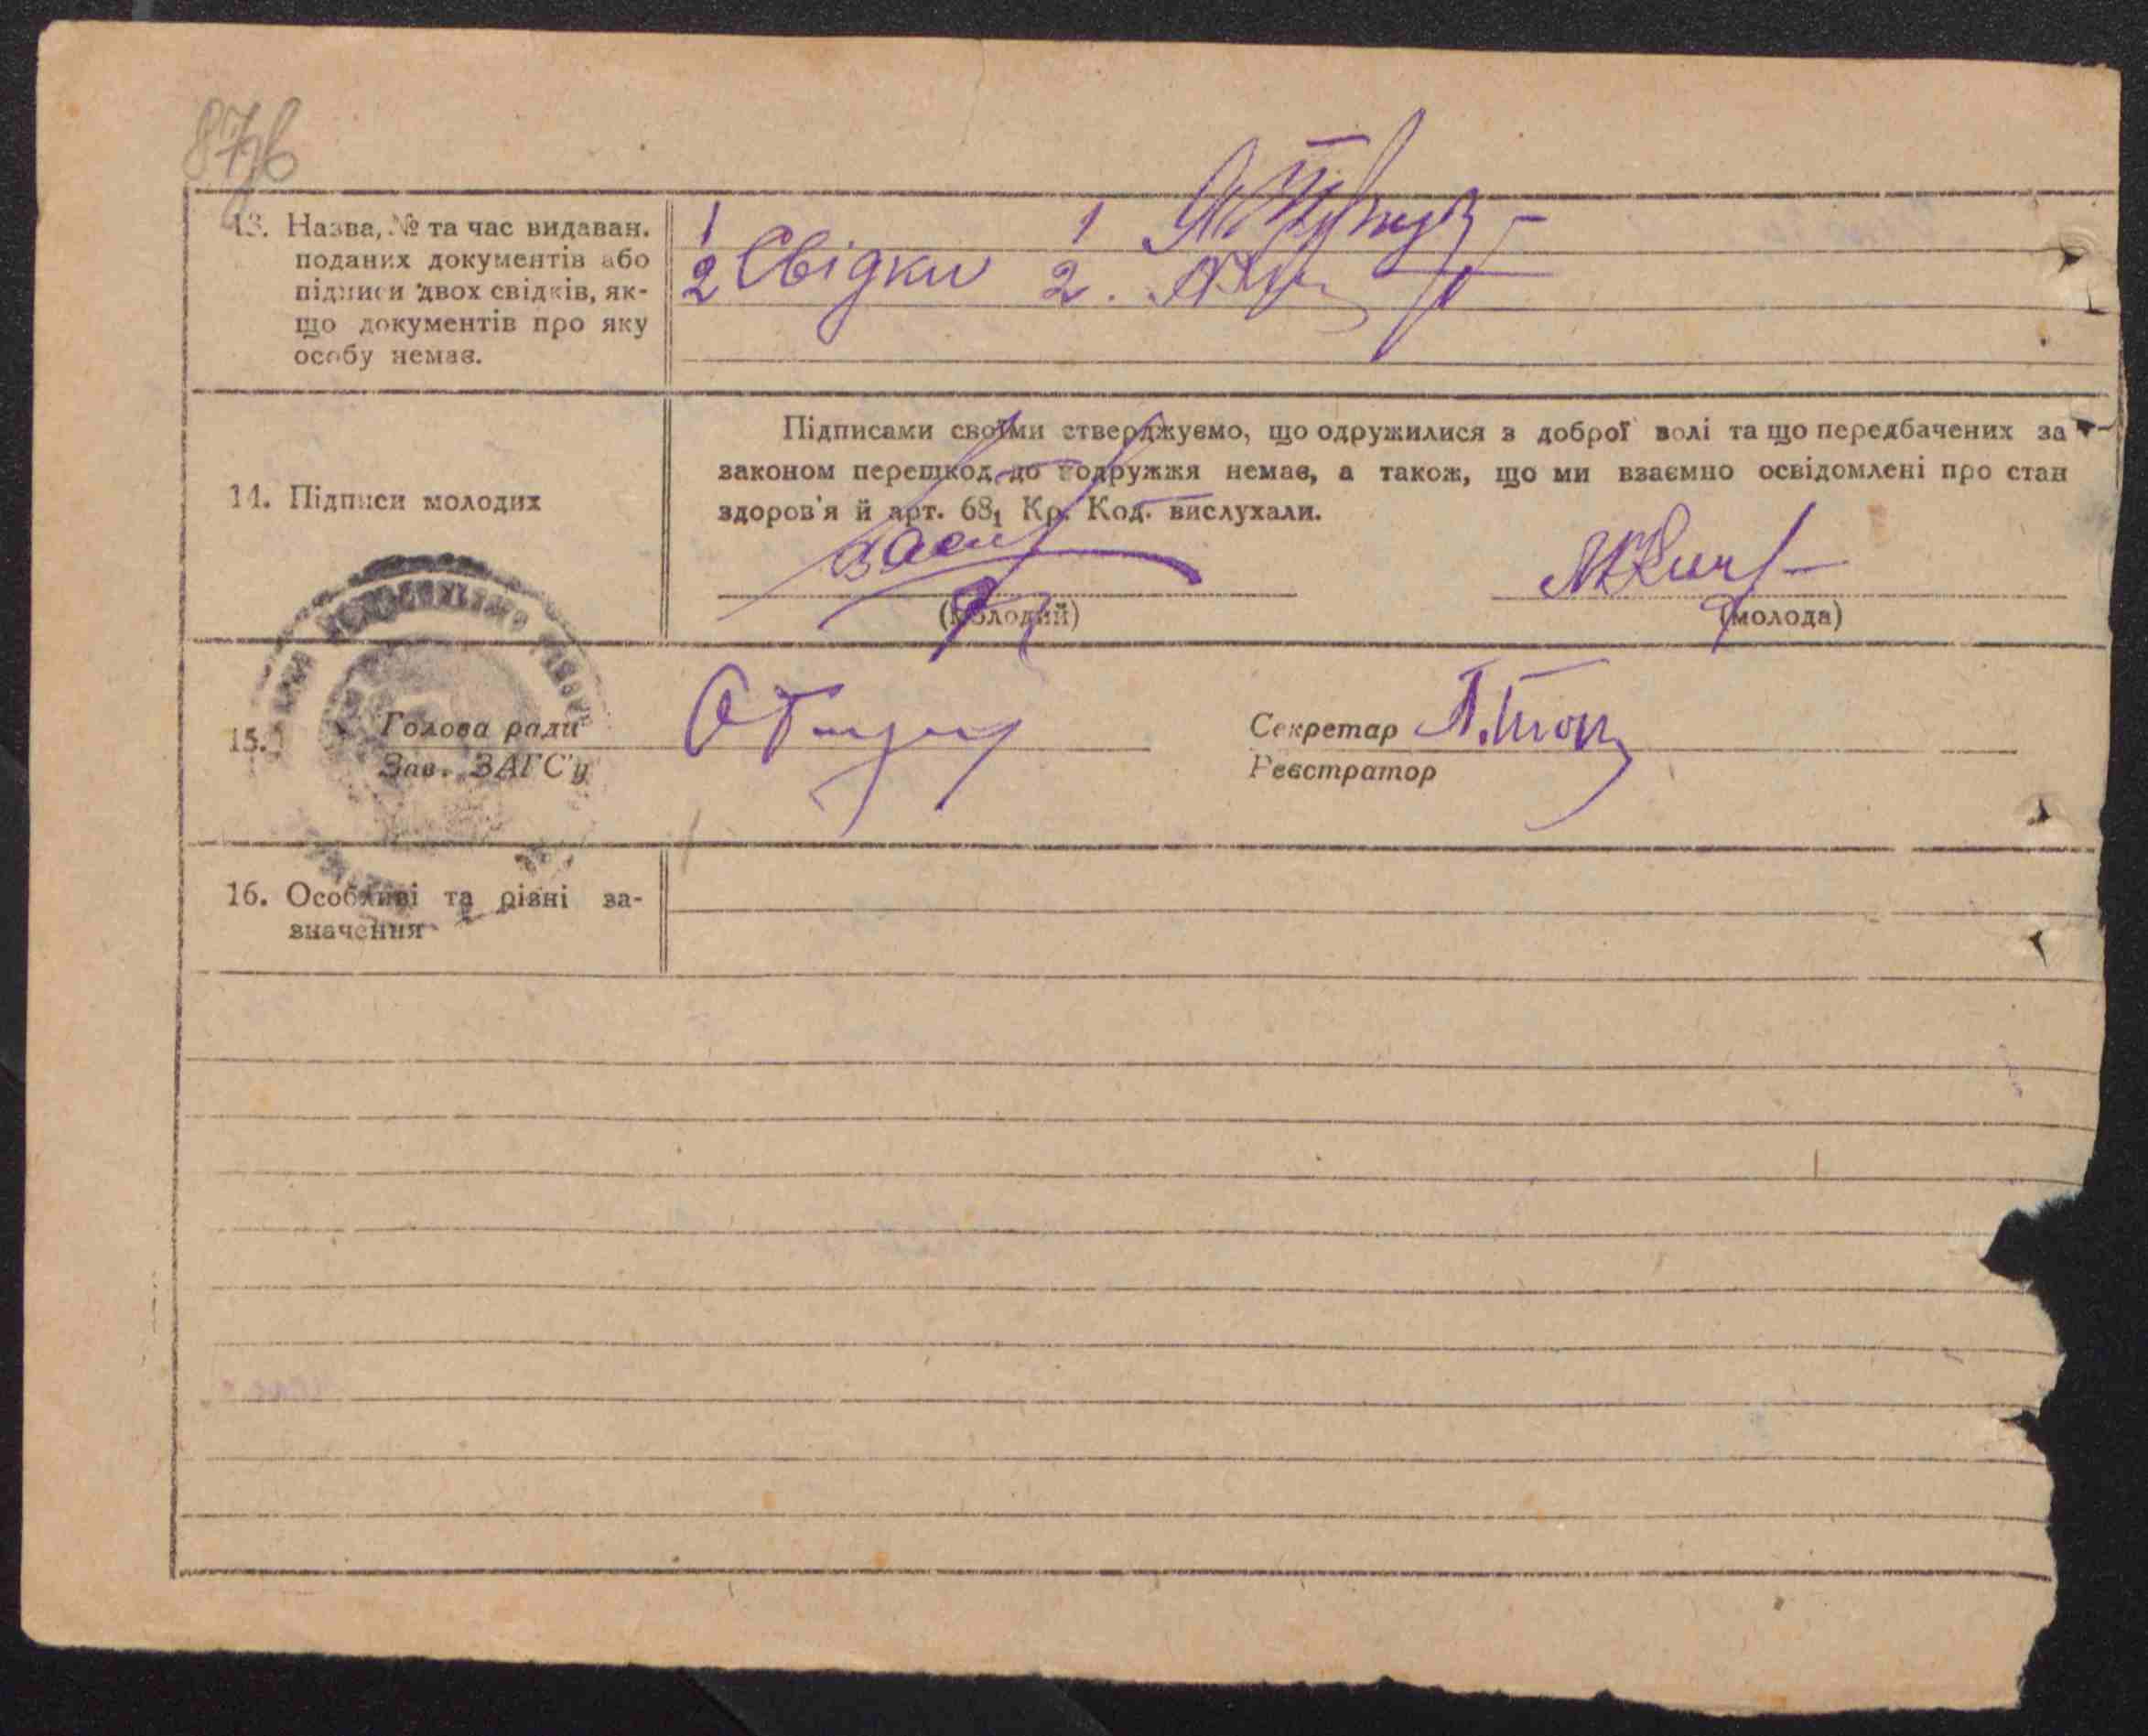 13. Назва, № та час видаван.
поданих документів або
підписи двох свідків, як-
що документів про яку
особу немає.
1
2 Свідки
1
2.
14. Підписи молодих
Підписами своїми стверджуємо, що одружилися з доброї волі та що передбачених за
законом перешкод до подружжя немає, а також, що ми взаємно освідомлені про стан
здоров'я й арт. 68₁ Кр. Код. вислухали.
(молодий)
(молода)
15. Голова ради
Зав. ЗАГС'у
Секретар
Реєстратор
16. Особливі та різні за-
значення